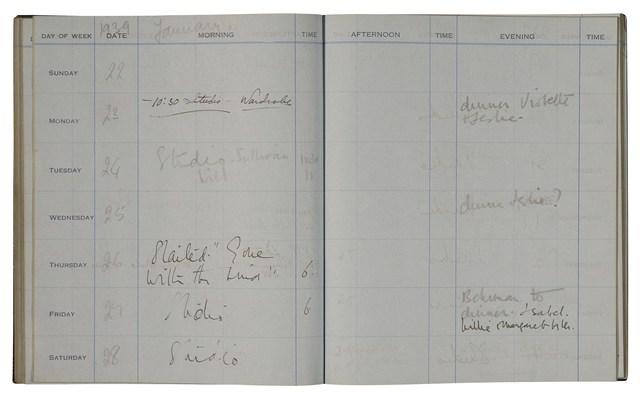 1939 January.
DAY OF WEEK DATE MORNING TIME AFTERNOON TIME EVENING TIME
SUNDAY 22
MONDAY 23 -10:30 Studio - Wardrobe dinner Violette
+ Leslie-
TUESDAY 24 Studio - Sullivan
WEDNESDAY 25 dinner Leslie?
THURSDAY 26 Started "Gone
with the Wind" 6
FRIDAY 27 Studio 6 Behrman to
dinner - Isabel.
Willie Margaret
SATURDAY 28 Studio